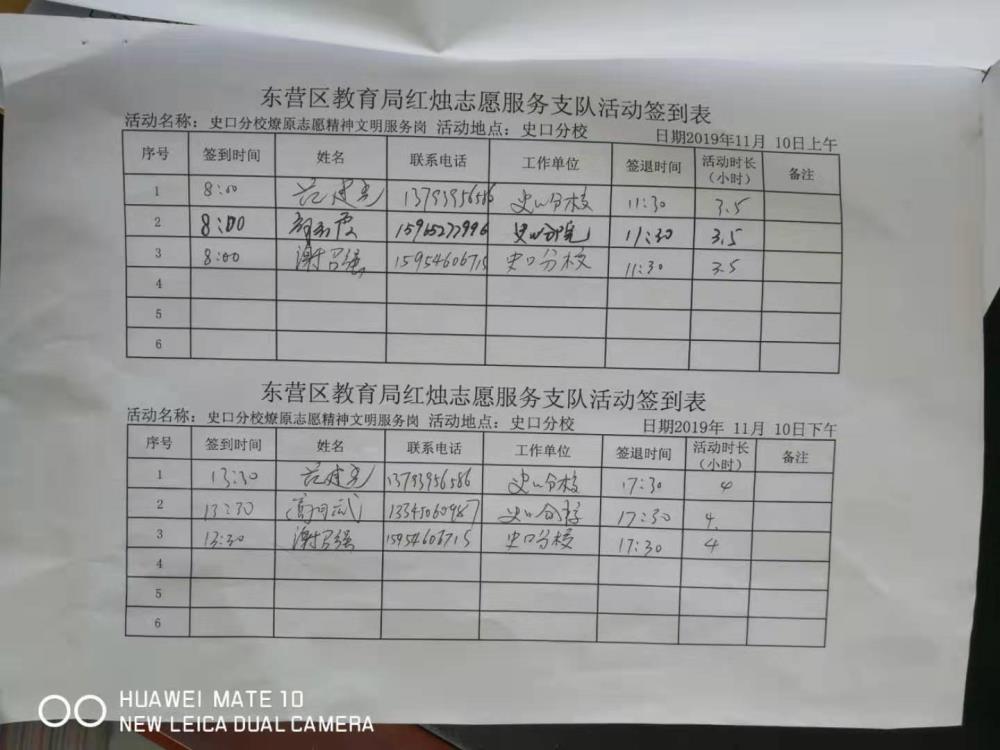 东营区教育局红烛志愿服务支队活动签到表
活动名称：史口分校燎原志愿精神文明服务岗 活动地点：史口分校 日期2019年11月 10日上午
序号 签到时间 姓名 联系电话 工作单位 签退时间 活动时长（小时） 备注
1 8:00 范建亮 13793956586 史口分校 11:30 3.5
2 8:00 史口分校 11:30 3.5
3 8:00 谢召强 15954606715 史口分校 11:30 3.5
4
5
6
东营区教育局红烛志愿服务支队活动签到表
活动名称：史口分校燎原志愿精神文明服务岗 活动地点：史口分校 日期2019年 11月 10日下午
序号 签到时间 姓名 联系电话 工作单位 签退时间 活动时长（小时） 备注
1 13:30 范建亮 13793956586 史口分校 17:30 4
2 13:30 史口分校 17:30 4
3 13:30 谢召强 15954606715 史口分校 17:30 4
4
5
6
HUAWEI MATE 10
NEW LEICA DUAL CAMERA